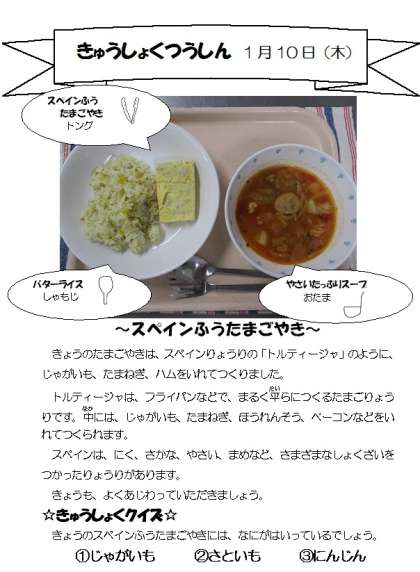 きゅうしょくつうしん　1月10日（木）
スペインふう
たまごやき
トング
バターライス
しゃもじ
やさいたっぷりスープ
おたま
～スペインふうたまごやき～
きょうのたまごやきは、スペインりょうりの「トルティージャ」のように、
じゃがいも、たまねぎ、ハムをいれてつくりました。
トルティージャは、フライパンなどで、まるく平（たい）らにつくるたまごりょう
りです。中（なか）には、じゃがいも、たまねぎ、ほうれんそう、ベーコンなどをい
れてつくられます。
スペインは、にく、さかな、やさい、まめなど、さまざまなしょくざいを
つかったりょうりがあります。
きょうも、よくあじわっていただきましょう。
☆きゅうしょくクイズ☆
きょうのスペインふうたまごやきには、なにがはいっているでしょう。
①じゃがいも　②さといも　③にんじん